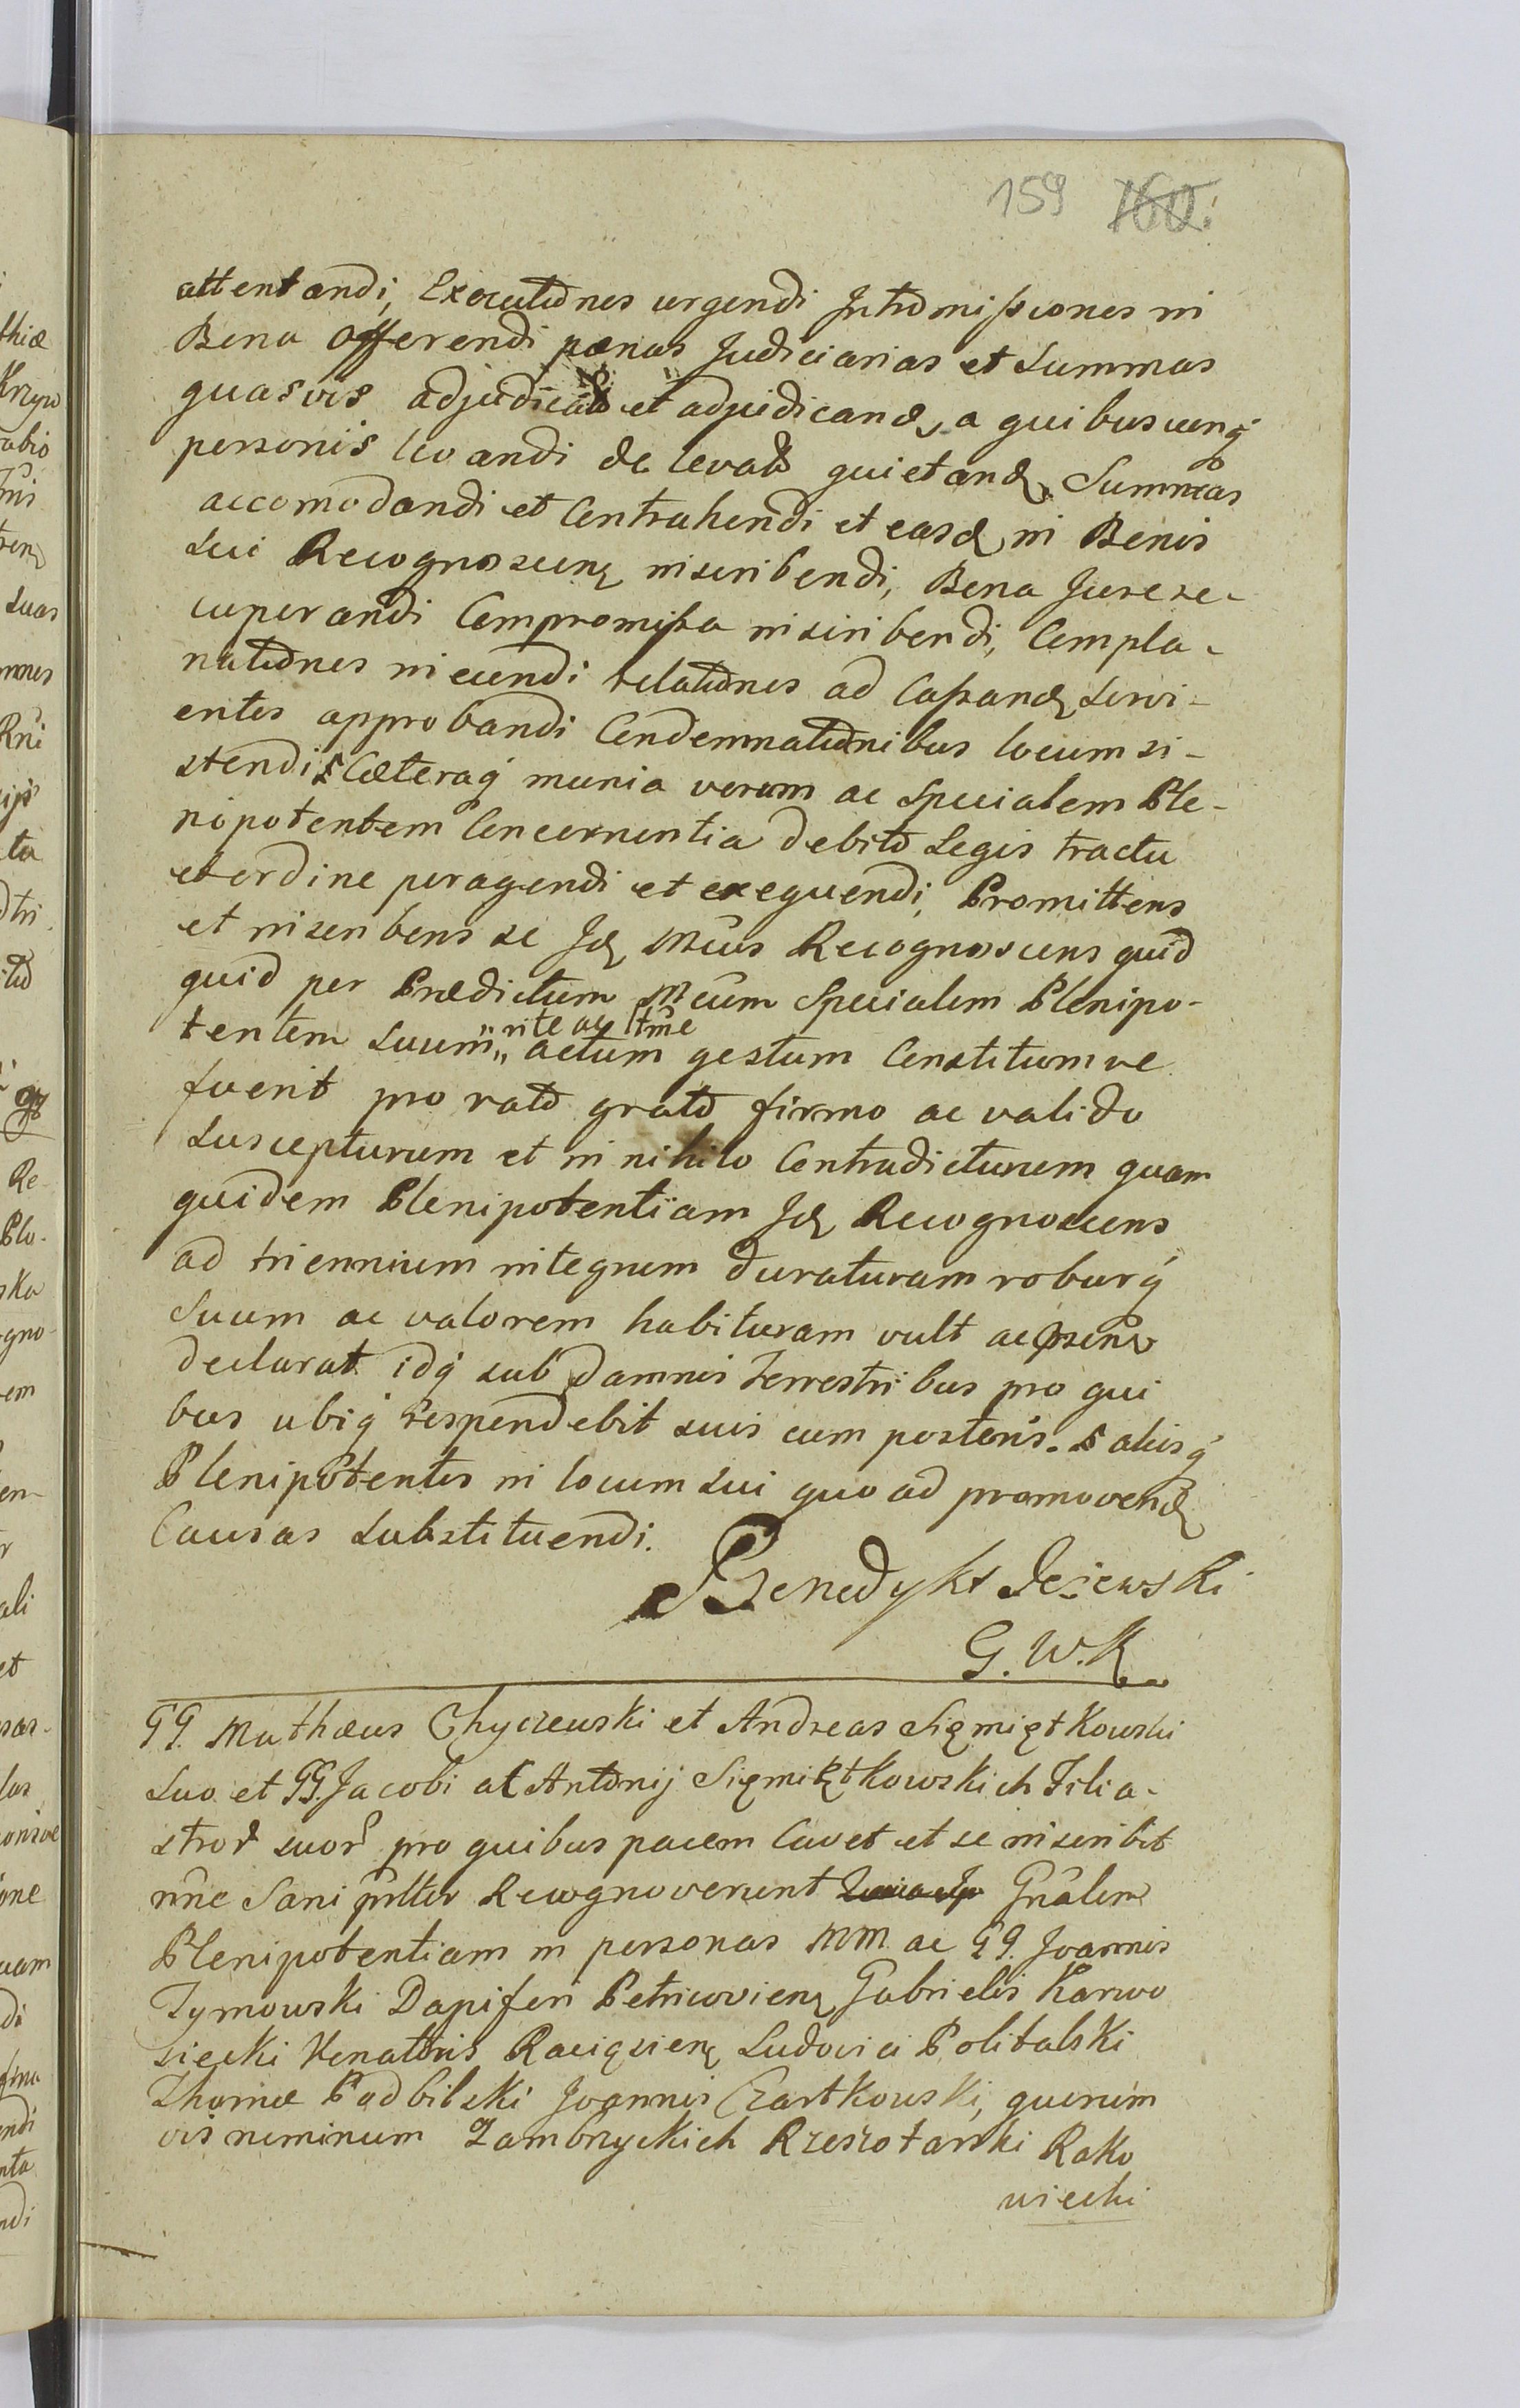 159 160.
attentandi, Executiones urgendi Intromissiones in
Bona Offerendi pœnas Judiciarias et Summas
quasvis adjudicatas et adjudicand, a quibuscunq
personis levandi de levatis quietand, Summas
accomodandi et Contrahendi et easd in Bonis
sui Recognoscen inscribendi, Bona Jure re-
cuperandi Compromissa inscribendi, Compla-
nationes ineundi relationes ad Cassand Servi-
entes approbandi Condemnationibus locum si-
stendi Cæteraq munia verum ac Specialem Ple-
nipotentem Concernentia debito Legis tractu
et ordine peragendi et exequendi, Promittens
et inscribens se Id Mcus Recognoscens quid
quid per Prædictum Mcum Specialem Plenipo-
tentem suum „ rite ac ltme actum gestum Constitumve
fuerit pro rato grato firmo ac valido
Suscepturum et in nihilo Contradicturum quam
quidem Plenipotentiam Id Recognoscens
ad triennium integrum duraturam roburq
Suum ac valorem habituram vult ac
declarat idq sub Damnis Terrestribus pro qui
bus ubiq respondebit suis cum posteris. aliisq
Plenipotentes in locum sui quo ad promovend
Causas Substituendi.
Benedykt Jeżewski
G. W. R
GG. Mathæus Chyczewski et Andreas Sięmiętkowski
Suo et GG. Jacobi ac Antonij Sięmiętkowskich Filia-
stror suor pro quibus pacem Cavet et se inscribit
nne Sani pntter Recognoverunt Gnalem
Plenipotentiam in personas MM. ac GG. Joannis
Tymowski Dapiferi Petricovien Gabrielis Karwo
siecki Venatoris Raciązien Ludovici Politalski
Thomæ Podbilski Joannis Czartkowski, quorum
vis neminum Zambrzyckich Rzeszotarski Rako
wiecki